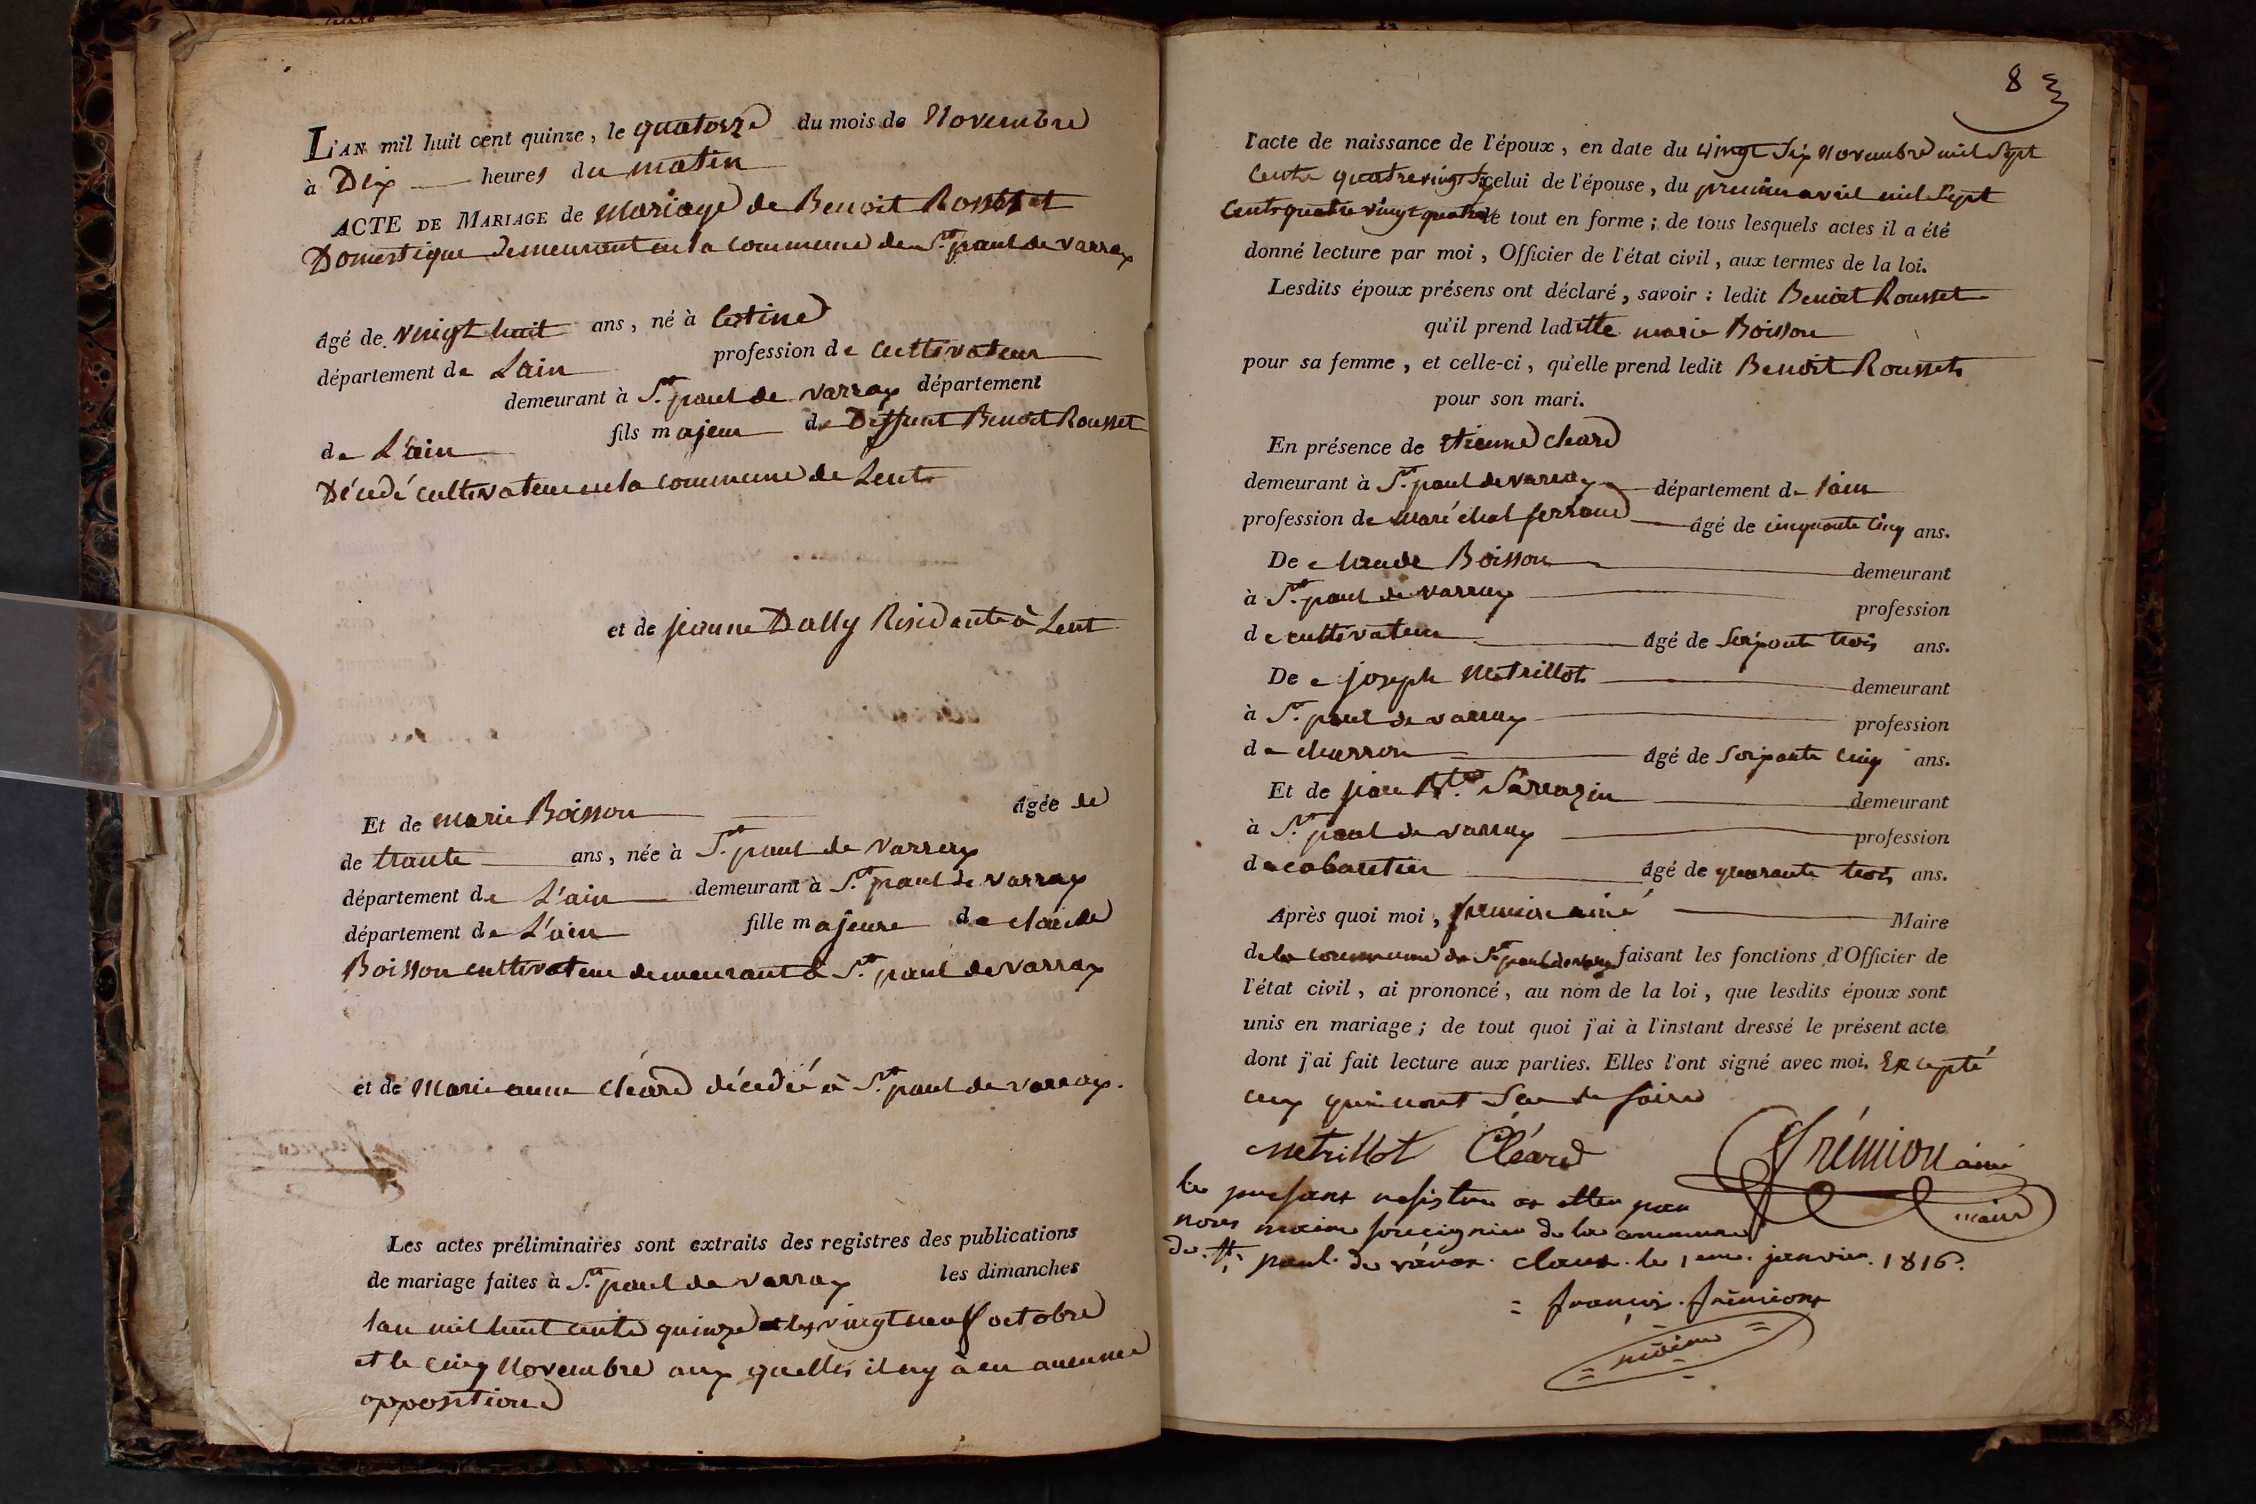 L'AN mil huit cent quinze, le quatorze du mois de Novembre
à Dix heures du matin
ACTE DE MARIAGE de mariage de Benoit Rousset
Domestique demeurant en la commune de St. paul de varax
agé de vingt huit ans, né à Certine
département de Lain profession de cultivateur
demeurant à St. paul de varrax département
de L'ain fils majeur de Deffunt Benoit Rousset
Décedé cultivateur en la commune de Lent
et de jeanne Dally Residente à Lent
Et de marie Boisson agée de
de trante ans, née à St. paul de varrax
département de L'ain demeurant à St. paul de varrax
département de L'ain fille majeure de claude
Boisson cultivateur demeurant à St. paul de varrax
et de Marie anne Cléard décedéé à St. paul de varrax.
Les actes préliminaires sont extraits des registres des publications
de mariage faites à St. paul de varrax les dimanches
lan mil huit cents quinze les vingt neuf octobre
et le cinq Novembre aux quelles il ny à eu aucunne
opposition
8
l'acte de naissance de l'époux, en date du vingt six Novembre mil sept
cents quatre vingt six celui de l'épouse, du premier avril mil sept
cents quatre vingt quatre le tout en forme; de tous lesquels actes il a été
donné lecture par moi, Officier de l'état civil, aux termes de la loi.
Lesdits époux présens ont déclaré, savoir: ledit Benoit Rousset
qu'il prend laditte marie Boisson
pour sa femme, et celle-ci, qu'elle prend ledit Benoit Rousset
pour son mari.
En présence de etienne cleard
demeurant à St. paul de varax département de lain
profession de maréchal ferrand âgé de cinquante cinq ans.
De claude Boisson demeurant
à St. paul de varrax profession
de cultivateur âgé de soixante trois ans.
De joseph Metrillot demeurant
à St. paul de varrax profession
de charron âgé de soixante cinq ans.
Et de jean Bte. Sarrazin demeurant
à St. paul de varrax profession
de cabaretier âgé de quarante trois ans.
Après quoi moi, fremion ainé Maire
de la commune de St. paul de varax faisant les fonctions d'Officier de
l'état civil, ai prononcé, au nom de la loi, que lesdits époux sont
unis en mariage; de tout quoi j'ai à l'instant dressé le présent acte
dont j'ai fait lecture aux parties. Elles l'ont signé avec moi. Excepté
ceux qui n'ont Seu le faire
metrillot Cléard frémion ainé
maire
le presant registre as etter par
nous maire soucignier de la commune
de St. paul de varax. claux. le 1em. janvier. 1816.
= françois. frémiont
= maire =